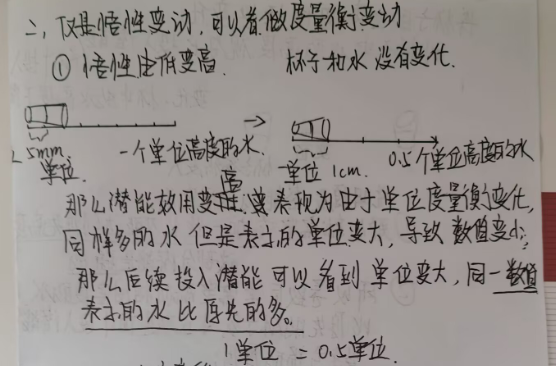 二、仅是悟性变动,可以看做度量衡变动
① 悟性由低变高. 杯子和水没有变化.
5mm. 一个单位高度的水 → 一单位 1cm. 0.5个单位高度的水
单位.
那么潜能效用变高,要表现为由于单位度量衡变化,
同样多的水 但是表示的单位变大,导致数值变小;
那么后续投入潜能可以看到单位变大,同一数值
表示的水比原先的多。
1单位 = 0.5单位.